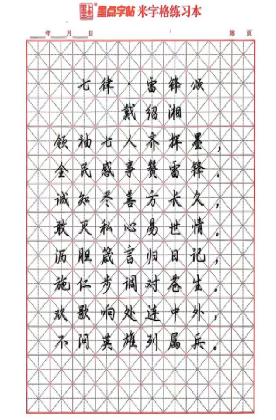 墨点字帖 米字格练习本
年 月 日
第 页
七律·雷锋颂
戴绍湘
领袖七人齐挥墨，
全民感事赞雷锋。
诚知尽善方长久，
敢灭私心易世情。
沥胆箴言归日记，
施仁步调对苍生。
欢歌响处连中外，
不问英雄列属兵。